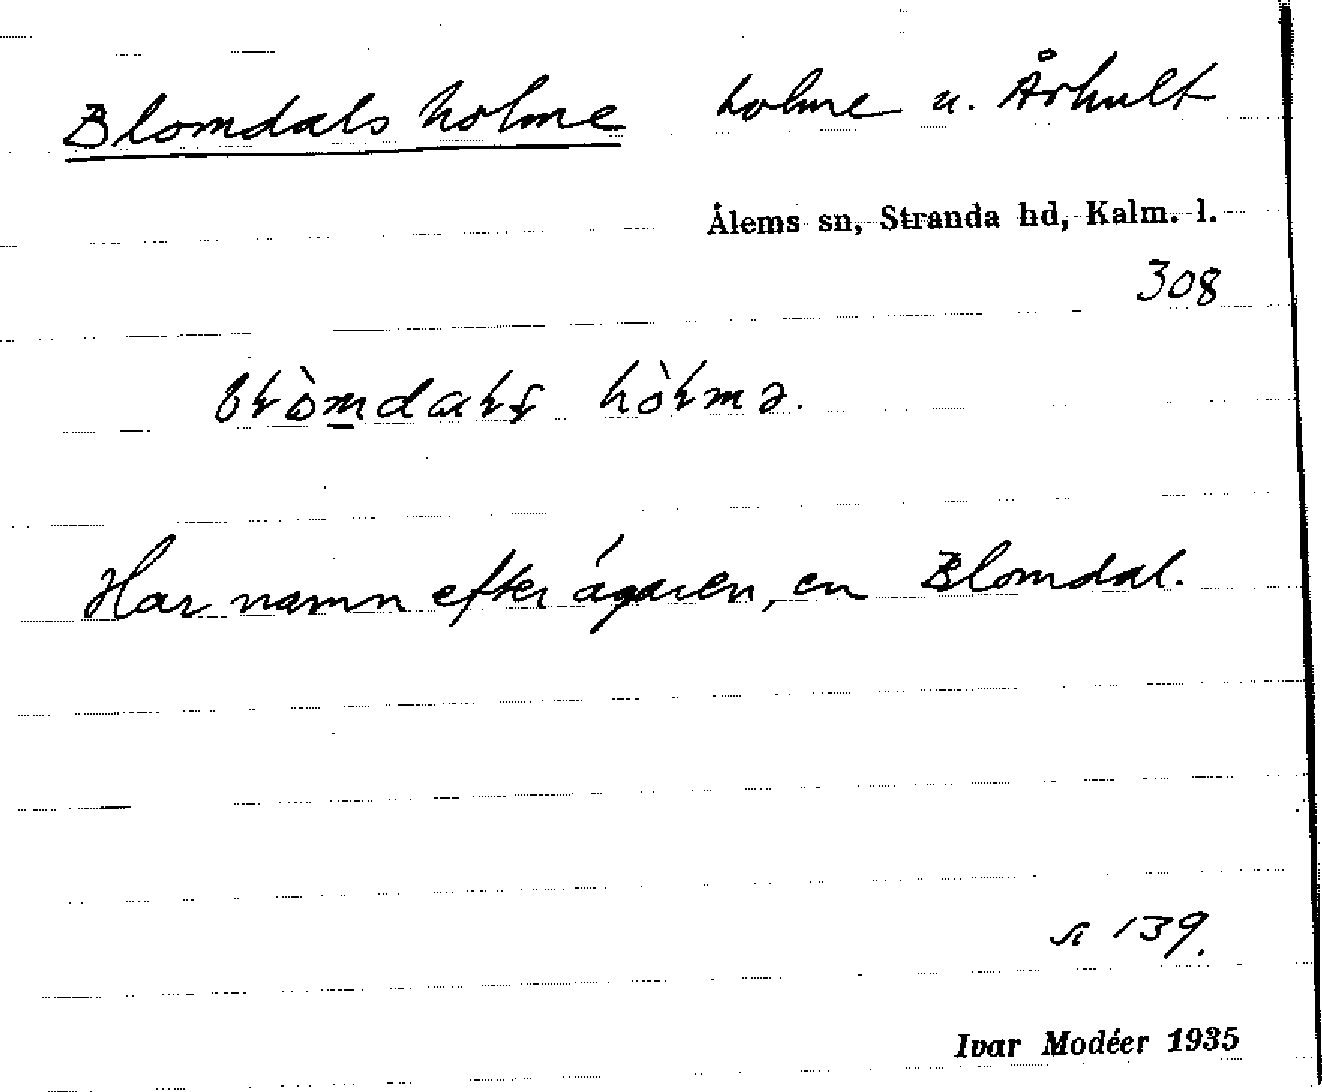 Blomdals holme holme u. Århult
Ålems sn, Stranda hd, Kalm. l.
308
Har namn efter ägaren, en Blomdal.
139.
Ivar Modéer 1935